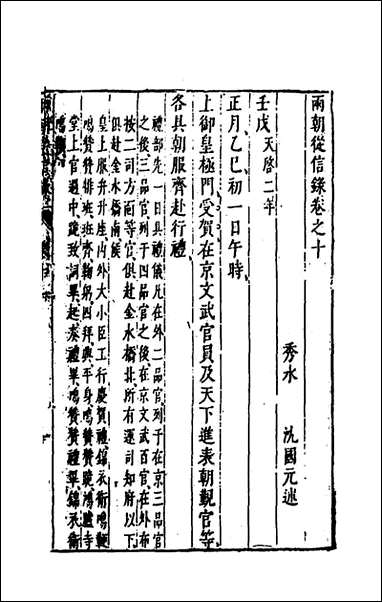 兩朝從信錄卷之十
秀水　沈國元述
壬戌天啓二年
正月乙巳初一日午時
上御皇極門受賀在京文武官員及天下進表朝覲官等
各具朝服齊赴行禮
禮部先一日具禮儀凡在外二品官列于在京三品官
之後三品官列于四品官之後在京文武百官在外布
按二司方面等官俱赴金水橋北所有運司知府以下
俱赴金水橋南候
皇上服弁升座內外大小臣工行慶賀禮錦衣衛鳴鞭
鴻贊贊排班班齊鞠躬四拜興平身鳴贊贊跪鴻臚寺
堂上官過中跪致詞畢起奏禮畢鳴贊贊禮畢錦衣衛
鳴鞭